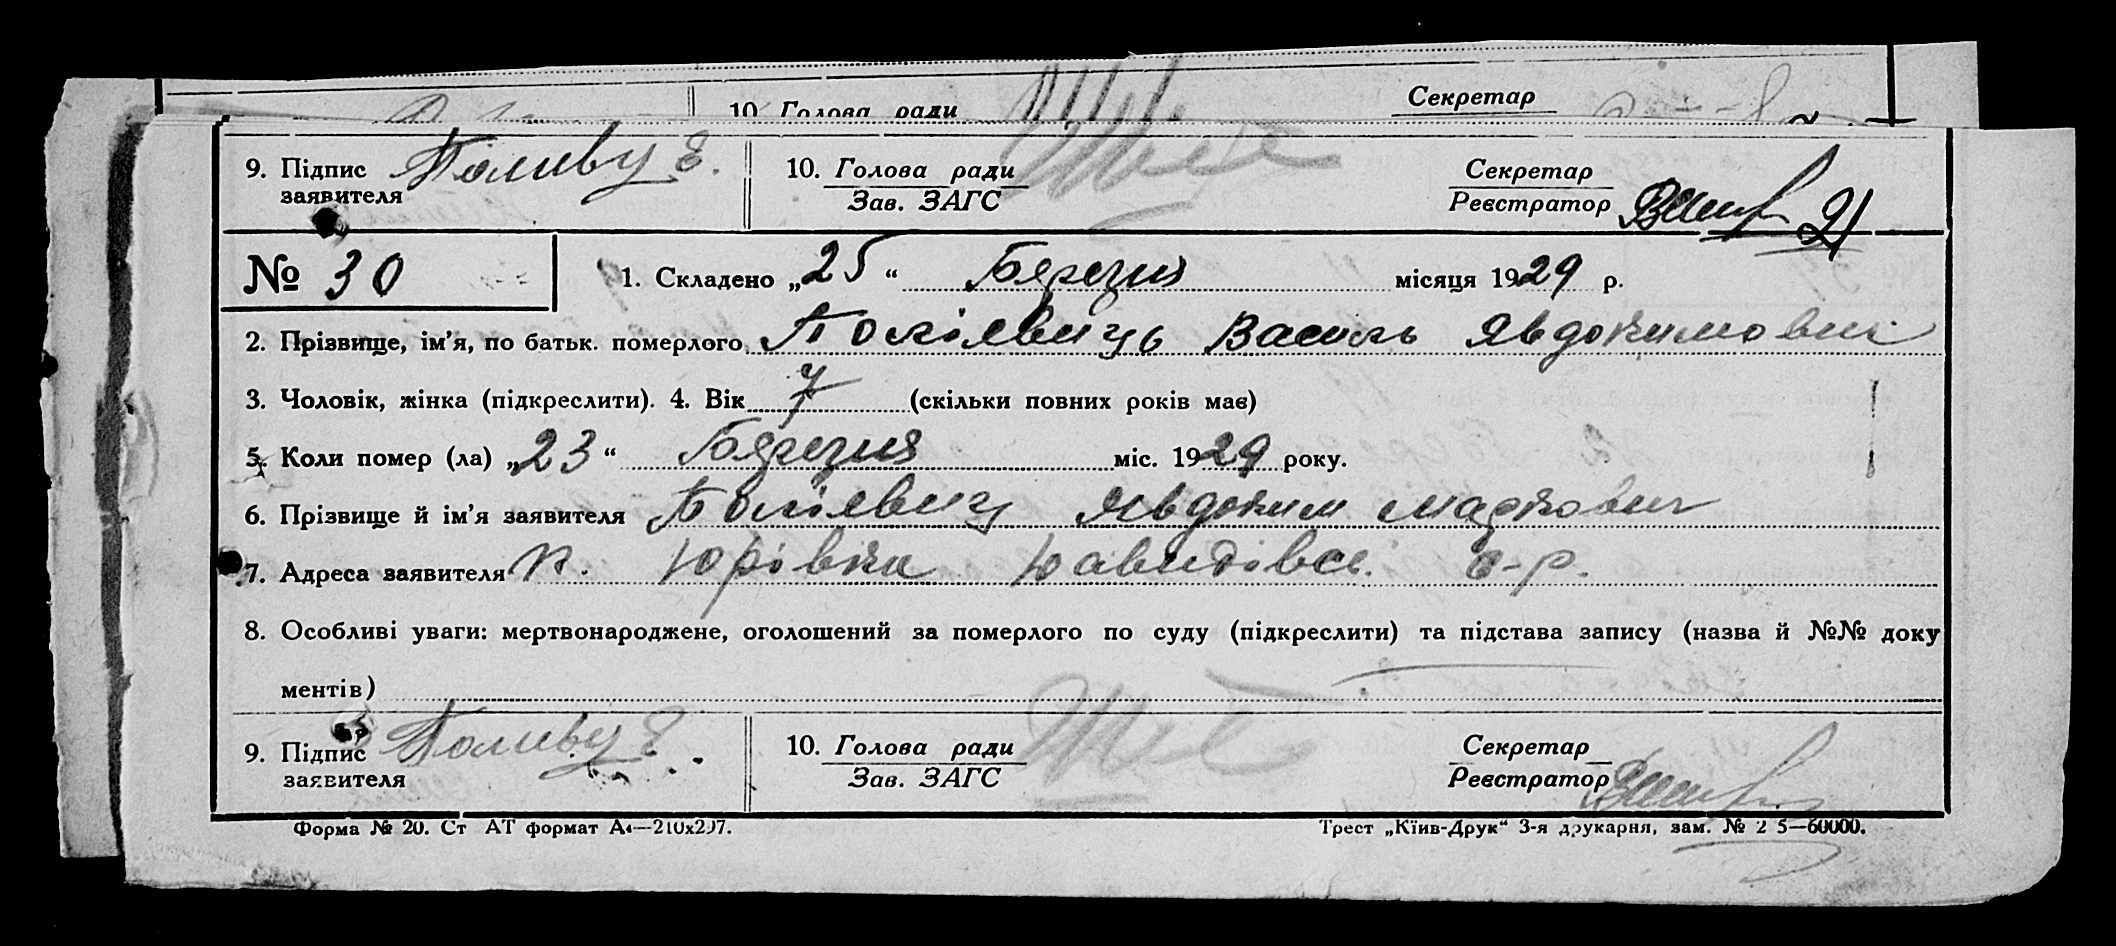 10. Голова ради Секретар
9. Підпис Поливу Є. 10. Голова ради Секретар
заявителя Зав. ЗАГС Реєстратор
№ 30 1. Складено „25“ Березня місяця 1929 р.
2. Прізвище, ім'я, по батьк. померлого Василь Явдокимович
3. Чоловік, жінка (підкреслити). 4. Вік 7 (скільки повних років має)
5. Коли помер (ла) „23“ Березня міс. 1929 року.
6. Прізвище й ім'я заявителя Явдоким Маркович
7. Адреса заявителя Юрівка с-р.
8. Особливі уваги: мертвонароджене, оголошений за померлого по суду (підкреслити) та підстава запису (назва й №№ доку
ментів)
9. Підпис Поливу Є 10. Голова ради Секретар
заявителя Зав. ЗАГС Реєстратор
Форма № 20. Ст АТ формат А4—210х297. Трест „Київ-Друк“ 3-я друкарня, зам. № 2 5—60000.